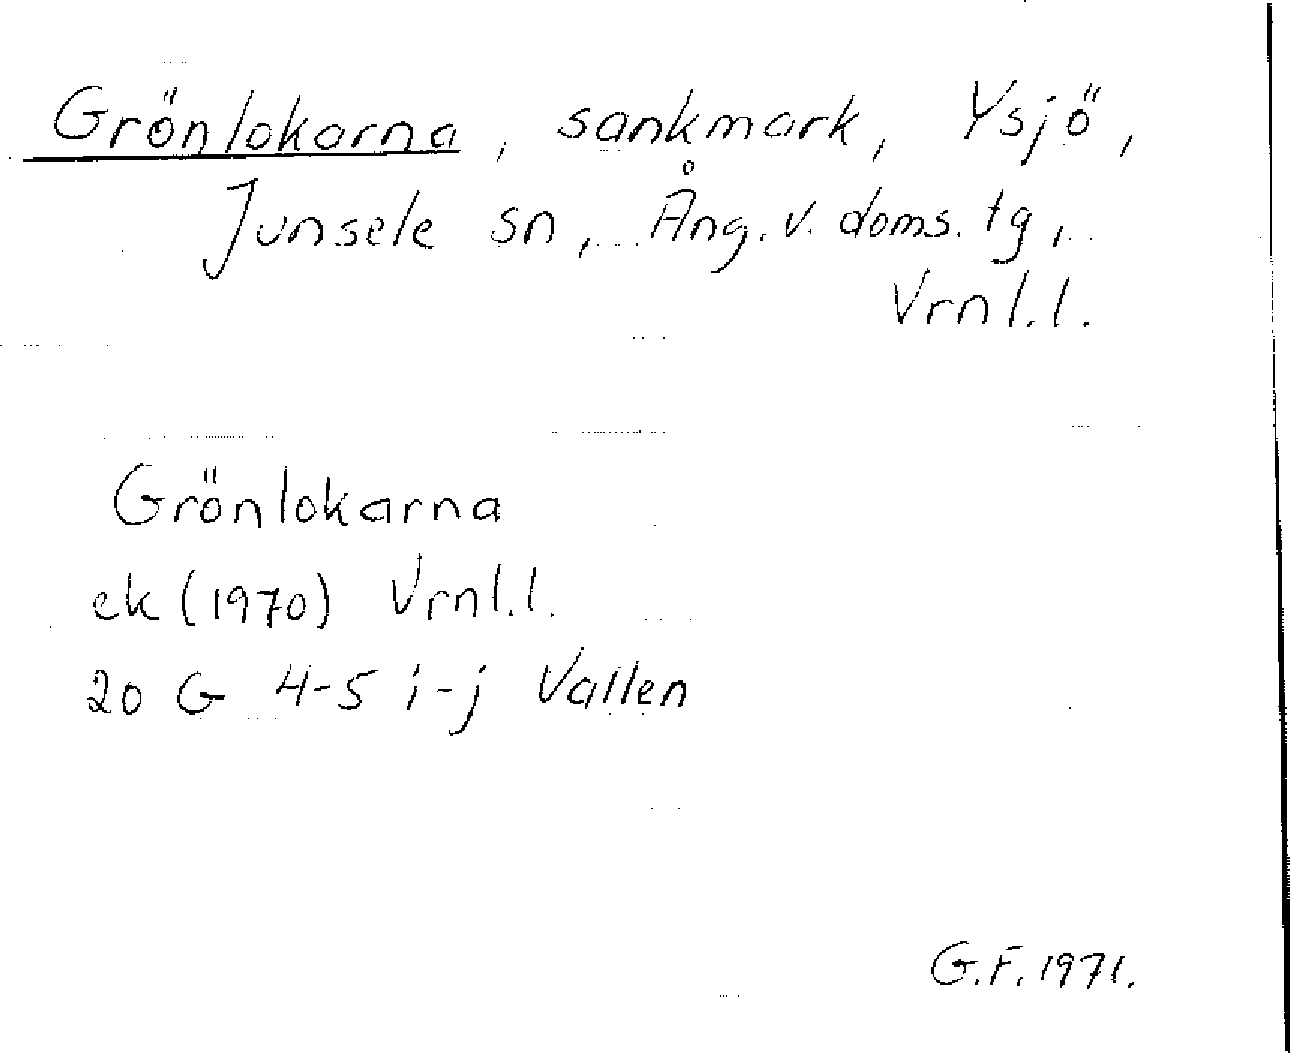 Grönlokarna, sankmark, Ysjö,
Junsele sn, Ång. v. doms. tg,
Vrnl.l.
Grönlokarna
ek (1970) Vrnl.l.
20 G 4-5 i-j Vallen
G.F. 1971.